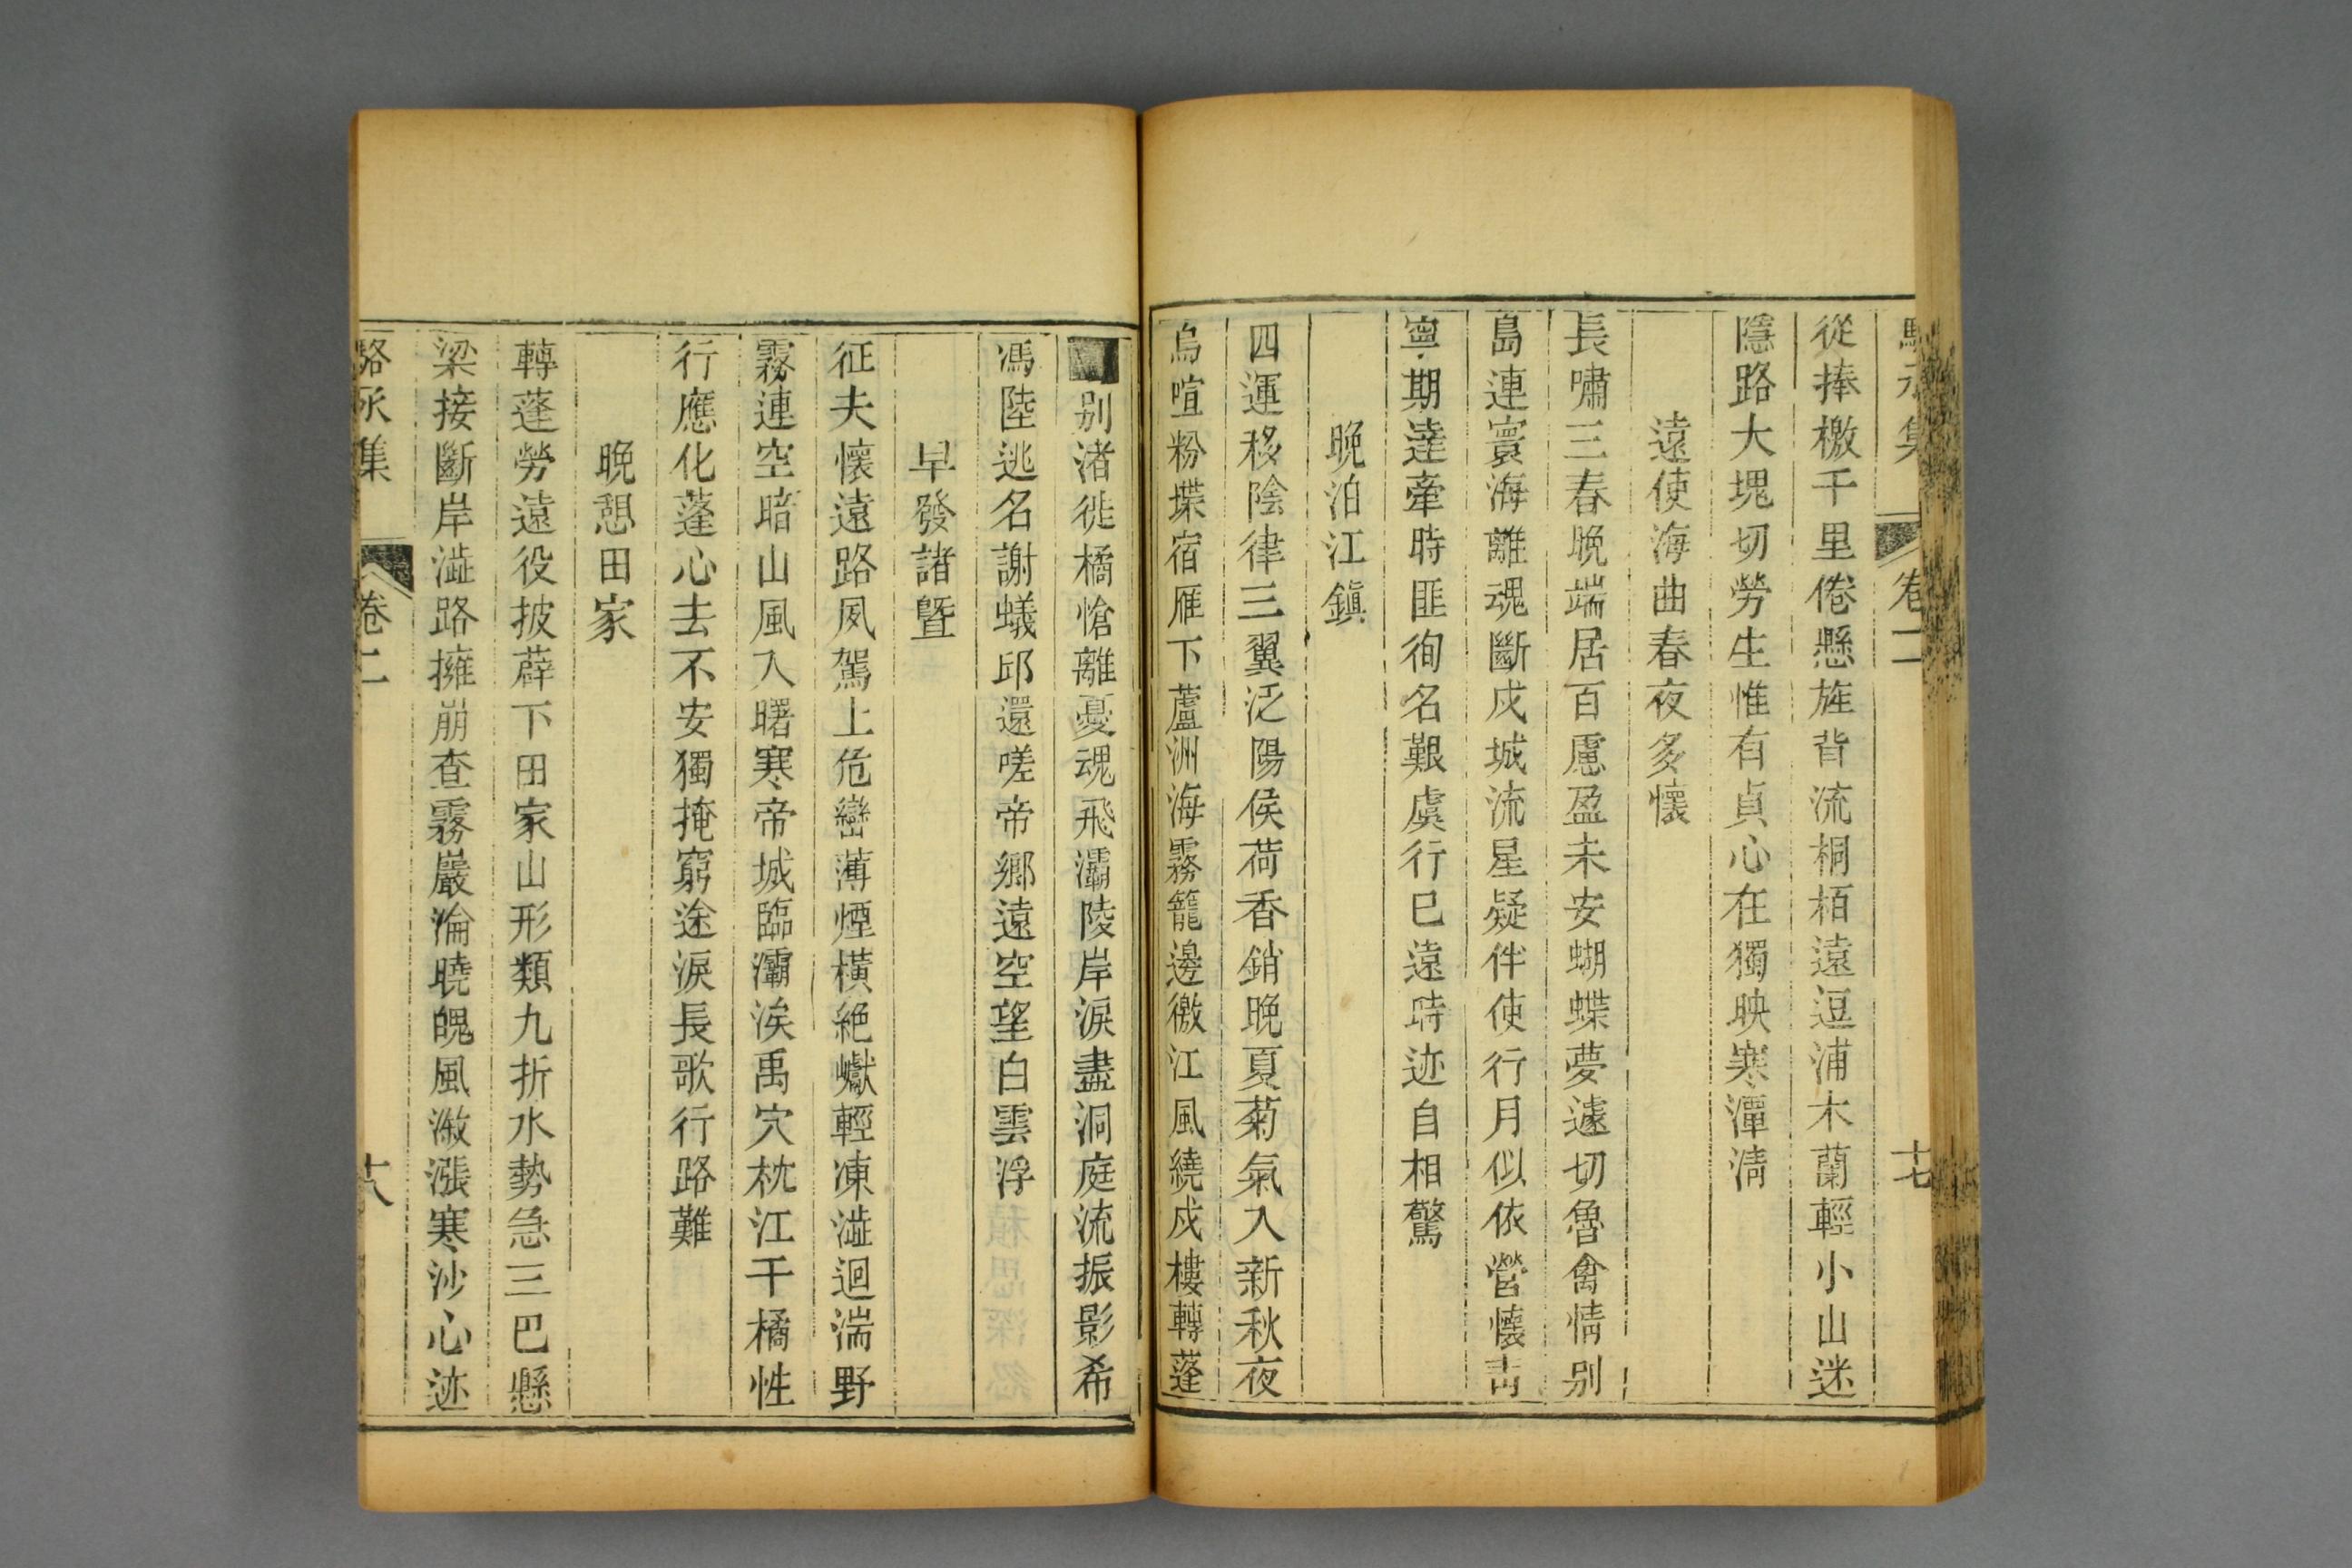 駱丞集 卷二 十七
從捧檄千里倦懸旌背流桐栢遠逗浦木蘭輕小山迷
隱路大塊切勞生惟有貞心在獨映寒潭淸
遠使海曲春夜多懷
長嘯三春晚端居百慮盈未安蝴蝶夢遽切魯禽情别
島連寰海離魂斷戍城流星疑伴使行月似依營懷靑
寧期達牽時匪徇名艱虞行已遠時迹自相驚
晚泊江鎮
四運移陰律三翼泛陽侯荷香銷晚夏菊氣入新秋夜
烏喧粉堞宿雁下蘆洲海霧籠邊徼江風繞戍樓轉蓬
别渚徙橘愴離憂魂飛灞陵岸淚盡洞庭流振影希
馮陸逃名謝蟻邱還嗟帝鄉遠空望白雲浮
早發諸曁
征夫懷遠路夙駕上危巒薄煙橫絕巘輕凍澁迴湍野
霧連空暗山風入曙寒帝城臨灞涘禹穴枕江干橘性
行應化蓬心去不安獨掩窮途淚長歌行路難
晚憩田家
轉蓬勞遠役披薜下田家山形類九折水勢急三巴懸
梁接斷岸澁路擁崩查霧巖淪曉魄風溆漲寒沙心迹
駱丞集 卷二 十八